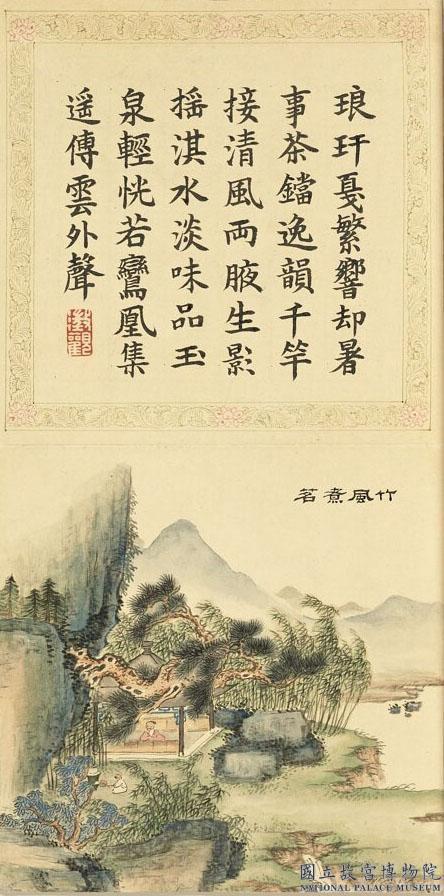 琅玕戛繁響却暑
事茶鐺逸韻千竿
接清風両腋生影
揺淇水淡味品玉
泉輕恍若鸞凰集
遥傳雲外聲
竹風煮茗
國立故宮博物院
NATIONAL PALACE MUSEUM